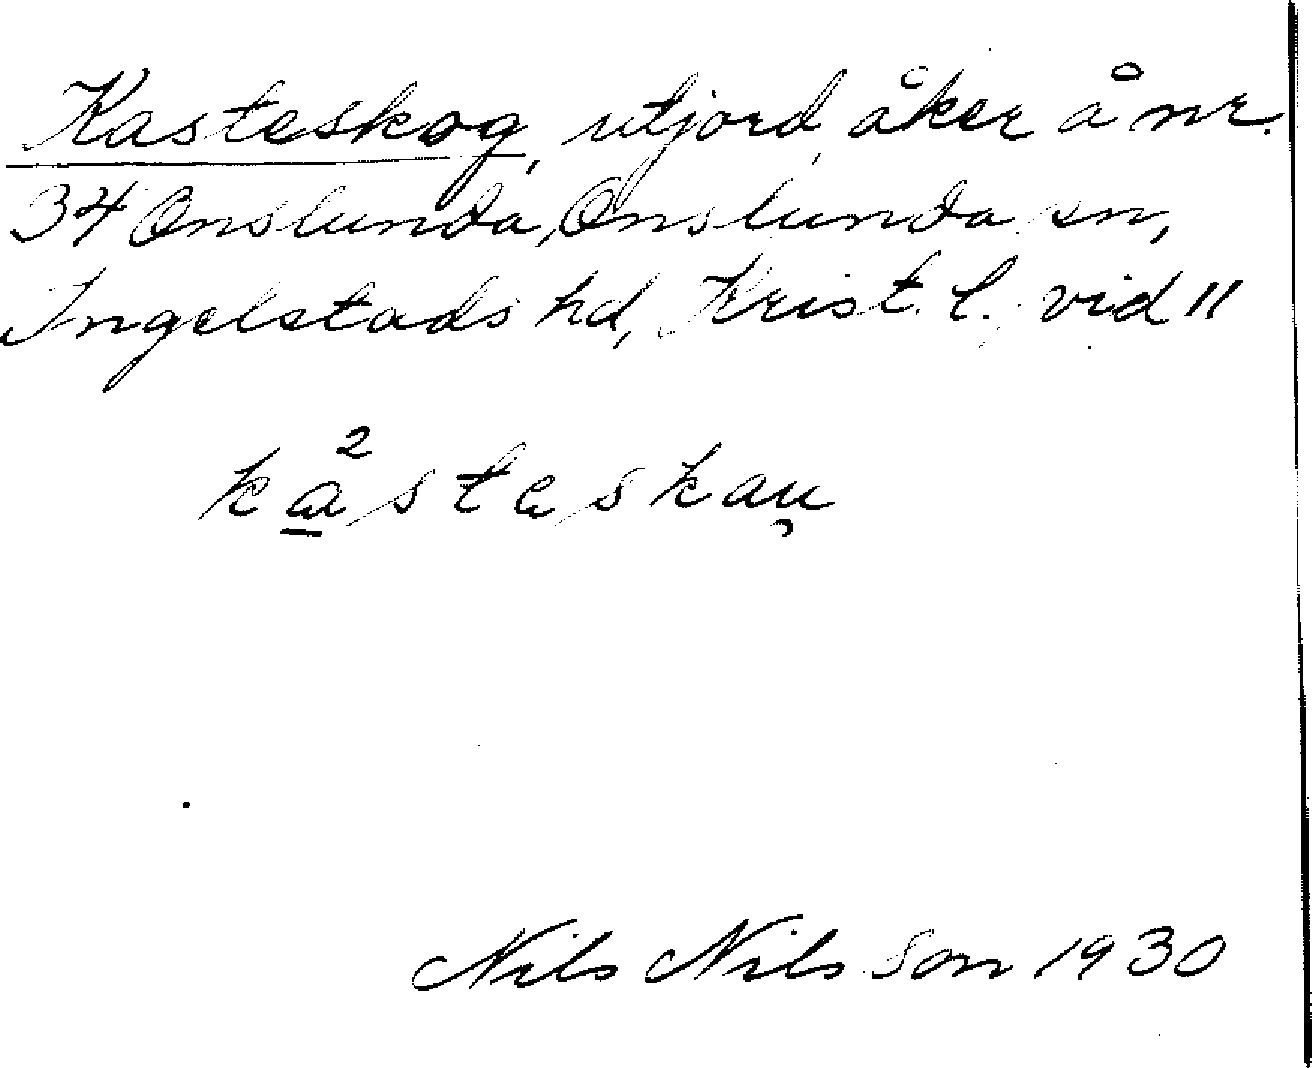 Kasteskog, utjord, åker å nr.
34 Onslunda, Onslunda sn,
Ingelstads hd, Krist. l. vid 11
ka²steskau̯
Nils Nilsson 1930